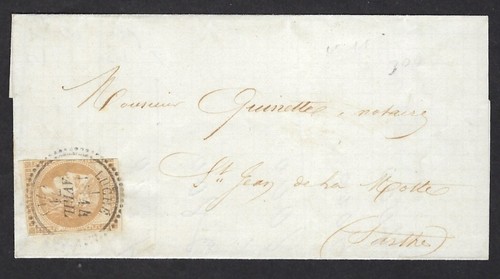 Monsieur Guinette, notaire
St Jean de la Motte
Sarthe
AVRIL